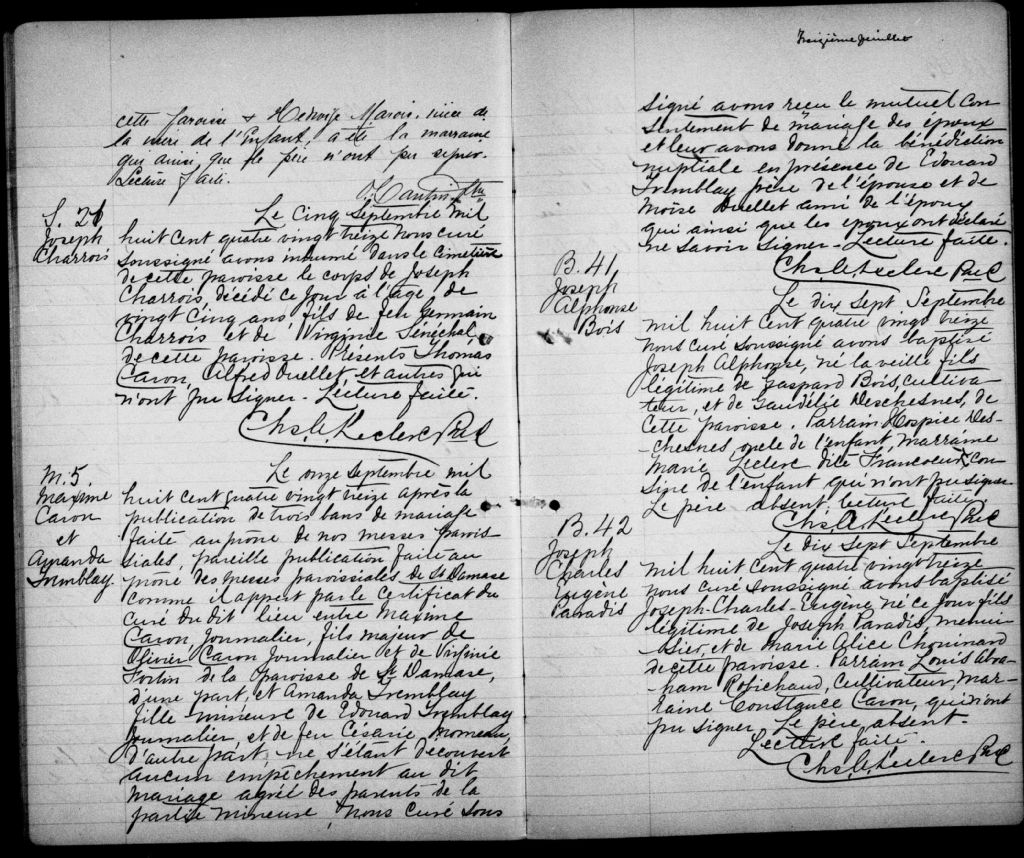 cette paroisse & Hedwige Marois, nièce de
la mère de l'Enfant, a été la marraine
qui ainsi que le père n'ont pu signer.
Lecture faite.
S. 21
Joseph
Charrois
Le Cinq Septembre mil
huit cent quatre vingt treize Nous curé
soussigné avons inhumé dans le cimetière
de cette paroisse le corps de Joseph
Charrois, décédé ce jour à l'âge de
vingt cinq ans, fils de feu Germain
Charrois et de Virginie Sénéchal,
de cette paroisse. Présents Thomas
Caron, Alfred Ouellet et autres qui
n'ont pu signer - Lecture faite.
Chs. A. Leclerc Ptre C
M. 5.
Maxime
Caron
et
Amanda
Tremblay
Le onze Septembre mil
huit cent quatre vingt treize après la
publication de trois bans de mariage
faite au prone de nos messes parois
siales, pareille publication faite au
prone des messes paroissiales de St Damase
comme il appert par le certificat du
curé du dit lieu entre Maxime
Caron, Journalier, fils majeur de
Olivier Caron Journalier et de Virginie
Fortin de la paroisse de St Damase,
d'une part, et Amanda Tremblay
fille mineure de Edouard Tremblay
Journalier, et de feu Césarie Moreau,
d'autre part, ne s'étant découvert
aucun empêchement au dit
mariage agréé des parents de la
partie mineure, Nous Curé sous
Treizième feuillet
signé avons reçu le mutuel con
sentement de mariage des époux
et leur avons donné la bénédiction
nuptiale en présence de Edouard
Tremblay père de l'épouse et de
Moïse Ouellet ami de l'époux
qui ainsi que les époux ont déclaré
ne savoir signer - Lecture faite.
Chs. A. Leclerc Ptre C
B. 41
Joseph
Alphonse
Bois
Le dix Sept Septembre
mil huit cent quatre vingt treize
Nous curé soussigné avons baptisé
Joseph Alphonse, né la veille fils
légitime de Gaspard Bois, cultiva-
teur, et de Gaudélie Deschesnes, de
cette paroisse. Parrain Hospice Des-
chesnes oncle de l'enfant Marraine
Marie Leclerc dite Francoeur, cou
sine de l'enfant qui n'ont pu signer
Le père absent. Lecture faite
Chs. A. Leclerc Ptre C
B. 42
Joseph
Charles
Eugène
Paradis
Le dix Sept Septembre
mil huit cent quatre vingt treize
Nous curé soussigné avons baptisé
Joseph-Charles-Eugène né ce jour fils
légitime de Joseph Paradis menui
sier, et de Marie Alice Chouinard
de cette paroisse. Parrain Louis Abra-
ham Robichaud, Cultivateur, Mar-
raine Constance Caron, qui n'ont
pu signer. Le père, absent-
Lecture faite.
Chs. A. Leclerc Ptre C